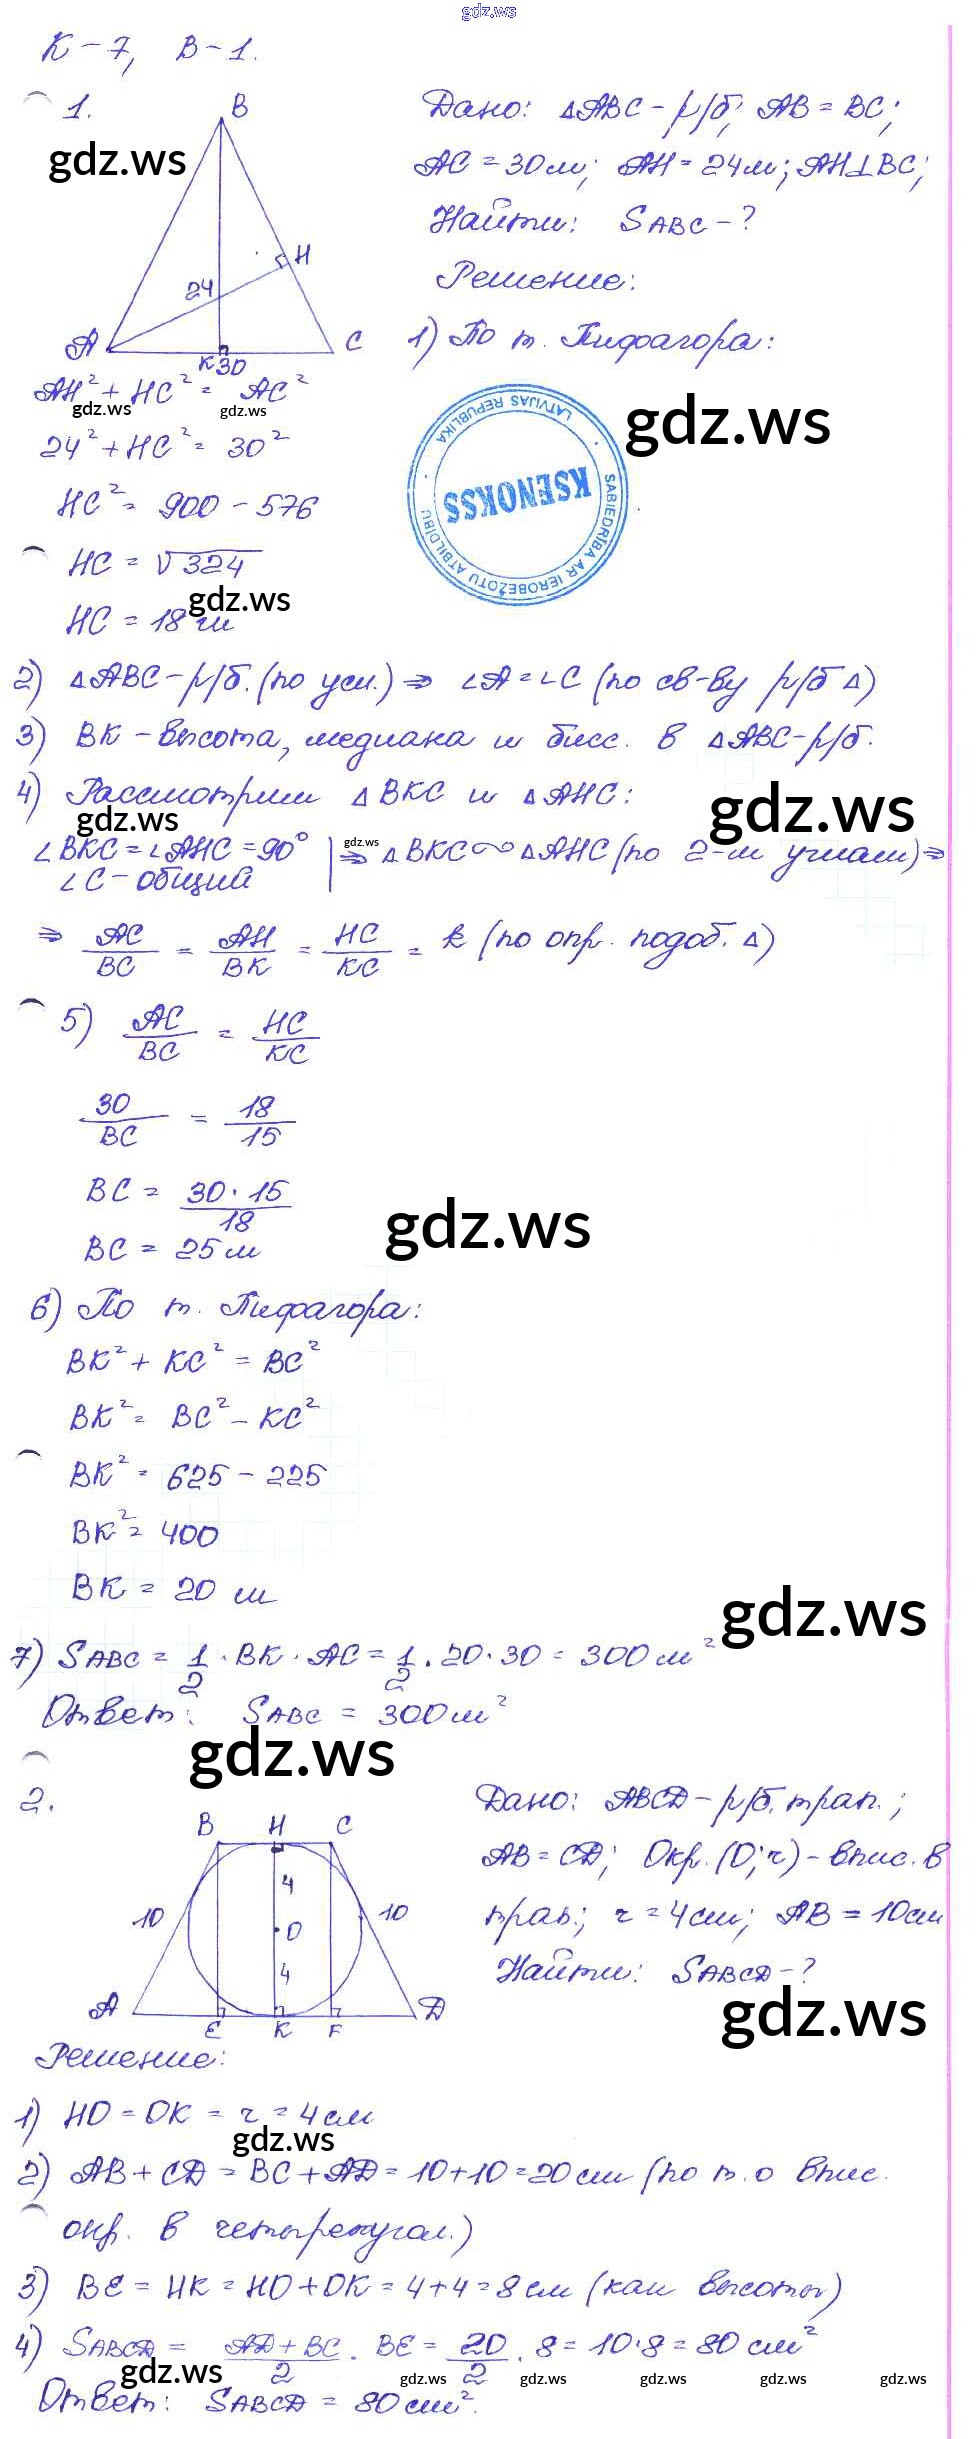 gdz.ws
К-7, В-1.
1.
B
H
24
A
K 30
C
gdz.ws
Дано: △ABC - р/б, AB = BC;
AC = 30м; AH = 24м; AH⊥BC;
Найти: SABC - ?
Решение:
1) По т. Пифагора:
AH² + HC² = AC²
gdz.ws
gdz.ws
24² + HC² = 30²
HC² = 900 - 576
HC = √324
HC = 18 м
gdz.ws
gdz.ws
LATVIJAS REPUBLIKA
KSENOKSS
SABIEDRĪBA AR IEROBEŽOTU ATBILDĪBU
2) △ABC - р/б. (по усл.) ⇒ ∠A = ∠C (по св-ву р/б △)
3) BK - высота, медиана и бисс. в △ABC - р/б.
4) Рассмотрим △BKC и △AHC:
gdz.ws
gdz.ws
∠BKC = ∠AHC = 90° | ⇒ △BKC ∾ △AHC (по 2-м углам) ⇒
∠C - общий
gdz.ws
⇒ AC/BC = AH/BK = HC/KC = k (по опр. подоб. △)
5) AC/BC = HC/KC
30/BC = 18/15
BC = 30·15/18
BC = 25 м
gdz.ws
6) По т. Пифагора:
BK² + KC² = BC²
BK² = BC² - KC²
BK² = 625 - 225
BK² = 400
BK = 20 м
gdz.ws
7) SABC = 1/2 · BK · AC = 1/2 · 20 · 30 = 300 м²
Ответ: SABC = 300 м²
gdz.ws
2.
B H C
4
10 O 10
4
A E K F D
Дано: ABCD - р/б. трап.;
AB = CD; Окр. (O; r) - впис. в
трап.; r = 4 см; AB = 10 см
Найти: SABCD - ?
gdz.ws
Решение:
1) HO = OK = r = 4 см
gdz.ws
2) AB + CD = BC + AD = 10 + 10 = 20 см (по т. о впис.
окр. в четырехугол.)
3) BE = HK = HO + OK = 4 + 4 = 8 см (как высоты)
4) SABCD = AD + BC/2 · BE = 20/2 · 8 = 10 · 8 = 80 см²
gdz.ws
gdz.ws gdz.ws gdz.ws gdz.ws gdz.ws
Ответ: SABCD = 80 см².